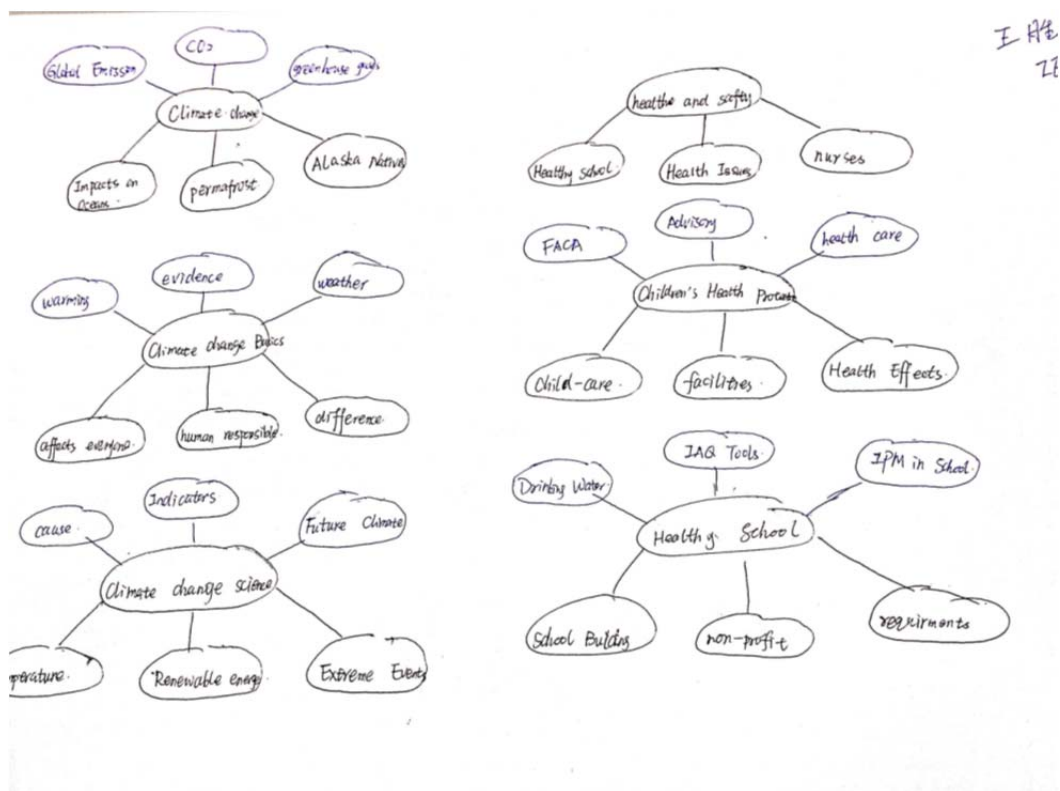 Global Emisson
CO2
greenhouse gases
Climate change
Impacts on
Oceans
permafrost.
Alaska Native
warming
evidence
weather
Climate change Basics
affects everyone.
human responsible.
difference.
cause.
Indicators
Future Climate
Climate change science
perature.
Renewable energy
Extreme Events
王胜
healthe and safty
Healthy school.
Health Issues
nurses
FACA
Advisory
health care
Children's Health Protect
Child-care.
facilitres.
Health Effects.
Drinking Water.
IAQ Tools.
IPM in School.
Healthy. School
School Building
non-profit
requirments